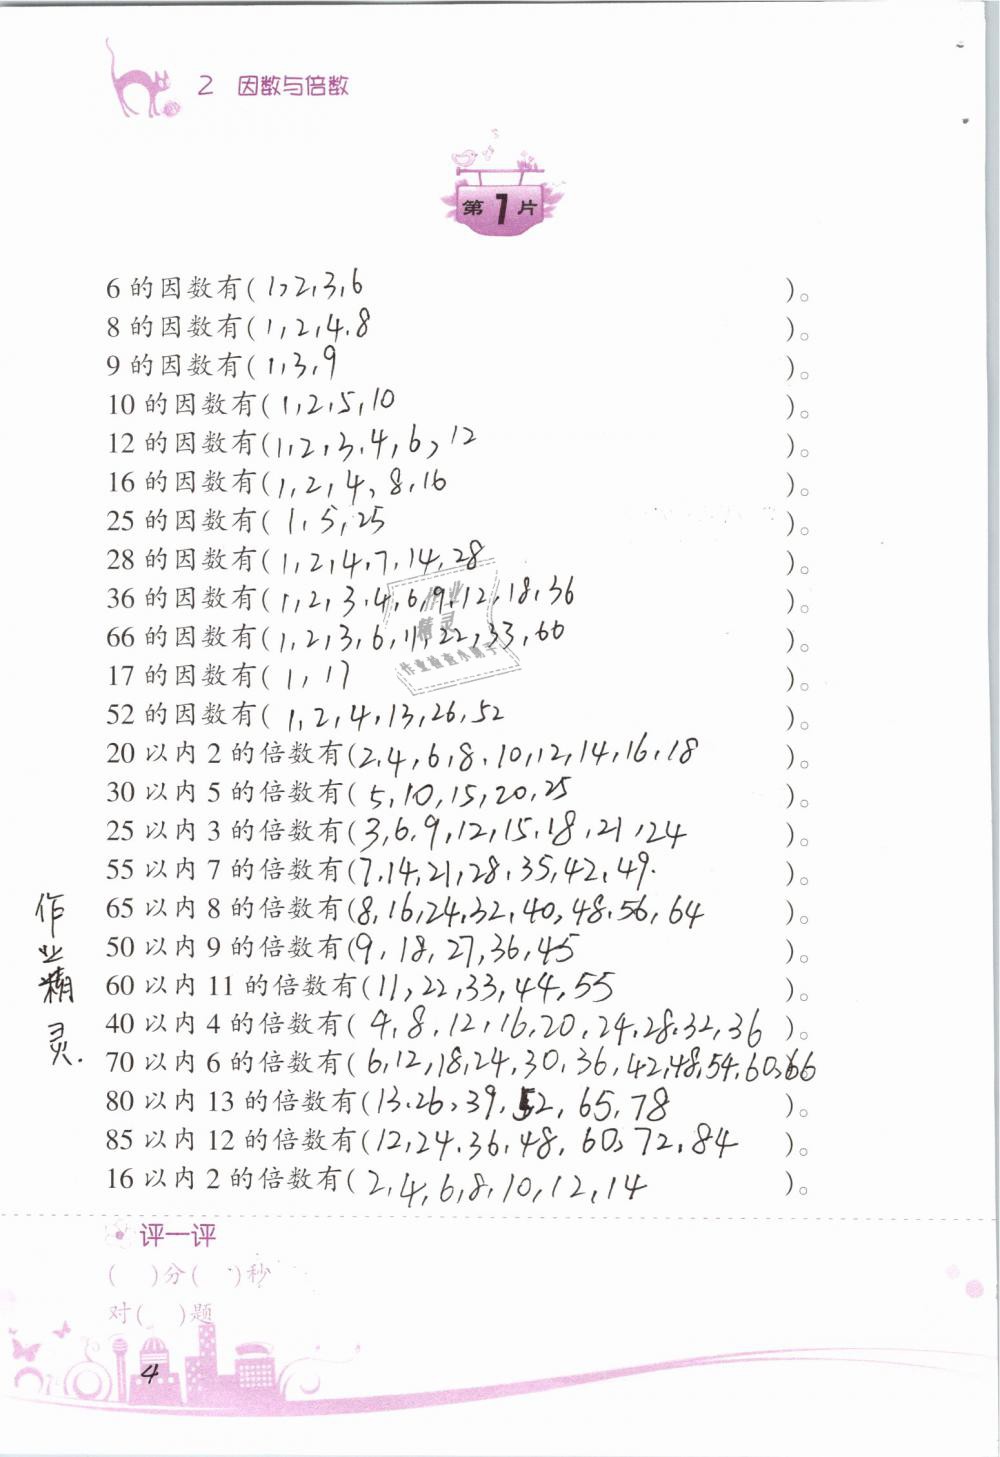 2 因数与倍数
第1片
6的因数有(1,2,3,6)。
8的因数有(1,2,4.8)。
9的因数有(1,3,9)。
10的因数有(1,2,5,10)。
12的因数有(1,2,3,4,6,12)。
16的因数有(1,2,4,8,16)。
25的因数有(1,5,25)。
28的因数有(1,2,4,7,14,28)。
36的因数有(1,2,3,4,6,9,12,18,36)。
66的因数有(1,2,3,6,11,22,33,66)。
17的因数有(1,17)。
52的因数有(1,2,4,13,26,52)。
20以内2的倍数有(2,4,6,8,10,12,14,16,18)。
30以内5的倍数有(5,10,15,20,25)。
25以内3的倍数有(3,6,9,12,15,18,21,24)。
55以内7的倍数有(7,14,21,28,35,42,49.)。
65以内8的倍数有(8,16,24,32,40,48,56,64)。
50以内9的倍数有(9,18,27,36,45)。
60以内11的倍数有(11,22,33,44,55)。
40以内4的倍数有(4,8,12,16,20,24,28,32,36)。
70以内6的倍数有(6,12,18,24,30,36,42,48,54,60,66
80以内13的倍数有(13.26,39,52,65,78)。
85以内12的倍数有(12,24.36,48,60,72,84)。
16以内2的倍数有(2,4,6,8,10,12,14)。
作业精灵.
作业
精灵
作业检查小助手
评一评
( )分( )秒
对( )题
4